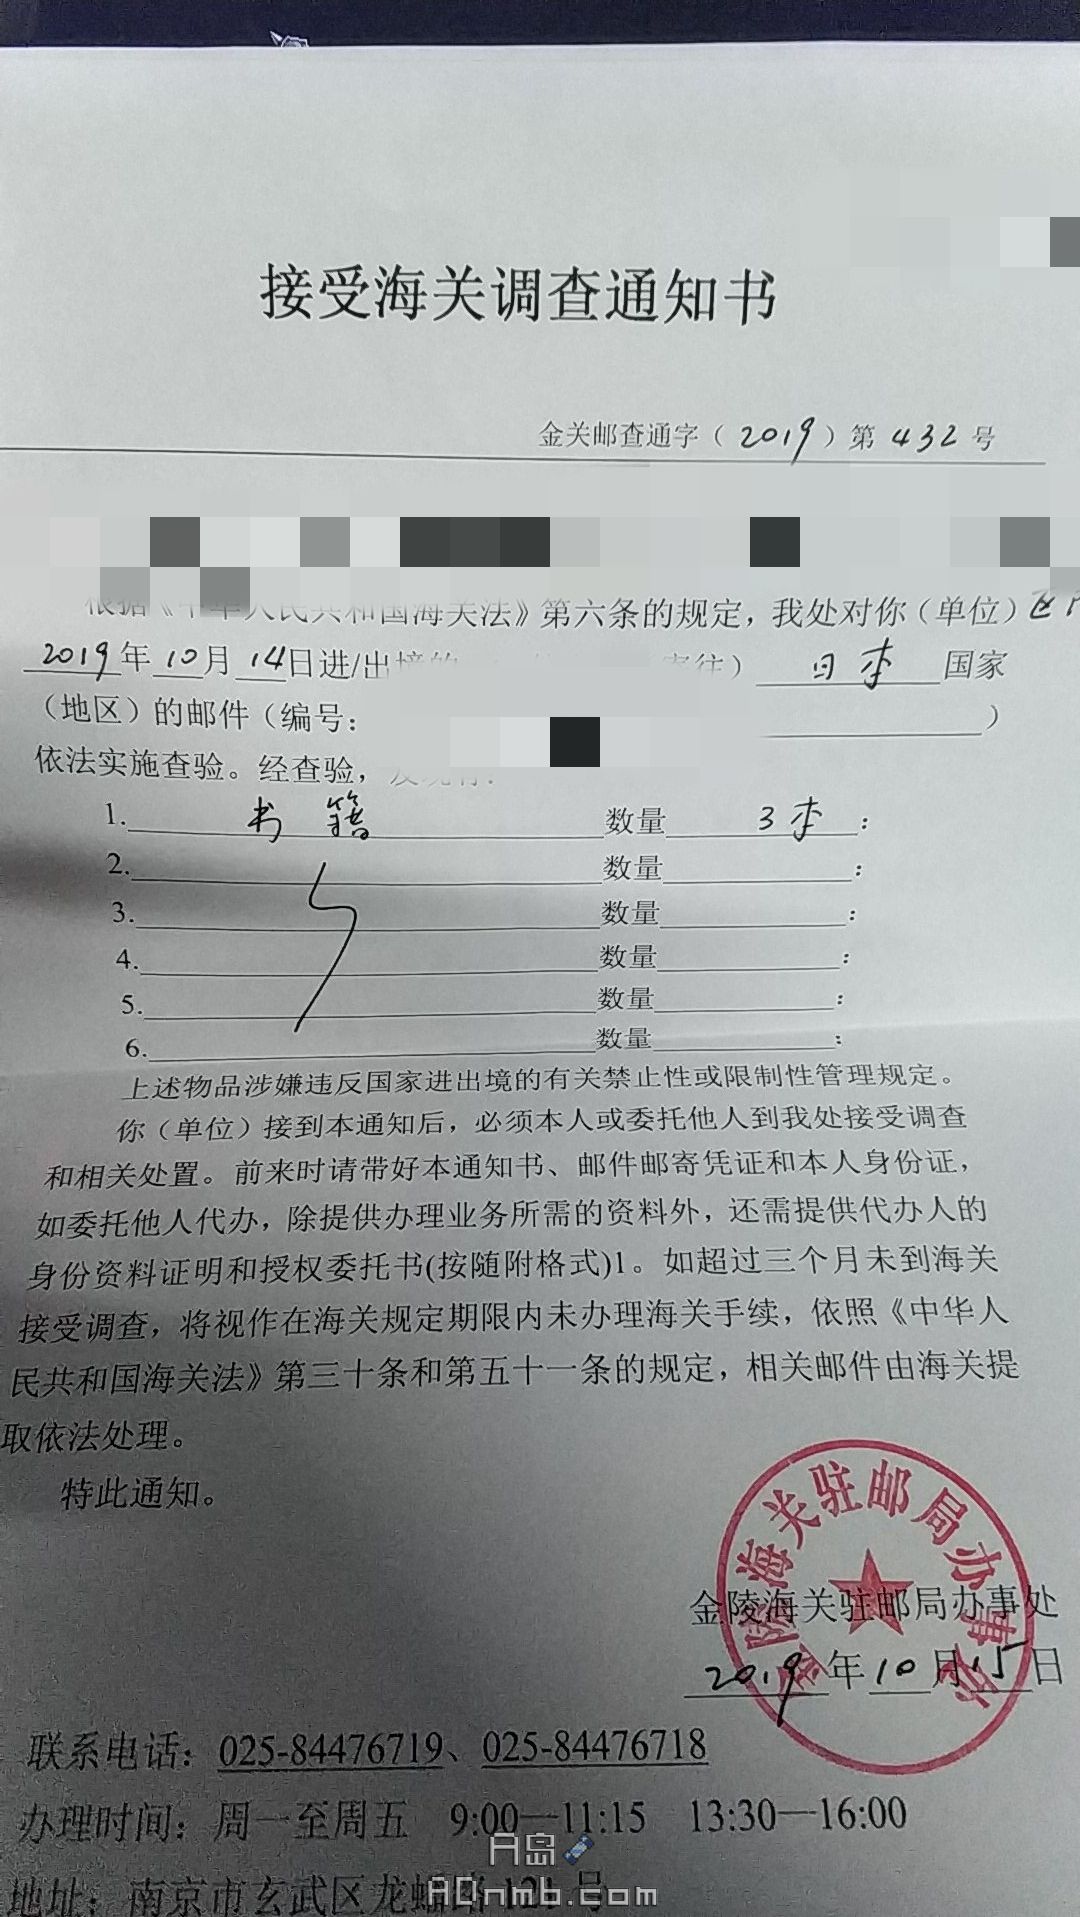 接受海关调查通知书
金关邮查通字（2019）第 432 号
根据《中华人民共和国海关法》第六条的规定，我处对你（单位）
2019年10月14日进/出境的 寄往）日本国家
（地区）的邮件（编号： ）
依法实施查验。经查验，发现有：
1. 书籍 数量 3本：
2. 数量 ：
3. 数量 ：
4. 数量 ：
5. 数量 ：
6. 数量 ：
上述物品涉嫌违反国家进出境的有关禁止性或限制性管理规定。
你（单位）接到本通知后，必须本人或委托他人到我处接受调查
和相关处置。前来时请带好本通知书、邮件邮寄凭证和本人身份证，
如委托他人代办，除提供办理业务所需的资料外，还需提供代办人的
身份资料证明和授权委托书(按随附格式)1。如超过三个月未到海关
接受调查，将视作在海关规定期限内未办理海关手续，依照《中华人
民共和国海关法》第三十条和第五十一条的规定，相关邮件由海关提
取依法处理。
特此通知。
金陵海关驻邮局办事处
金陵海关驻邮局办事处
2019年10月15日
联系电话：025-84476719、025-84476718
办理时间：周一至周五 9:00—11:15 13:30—16:00
A岛
地址：南京市玄武区龙蟠路 121 号
ADnmb.com